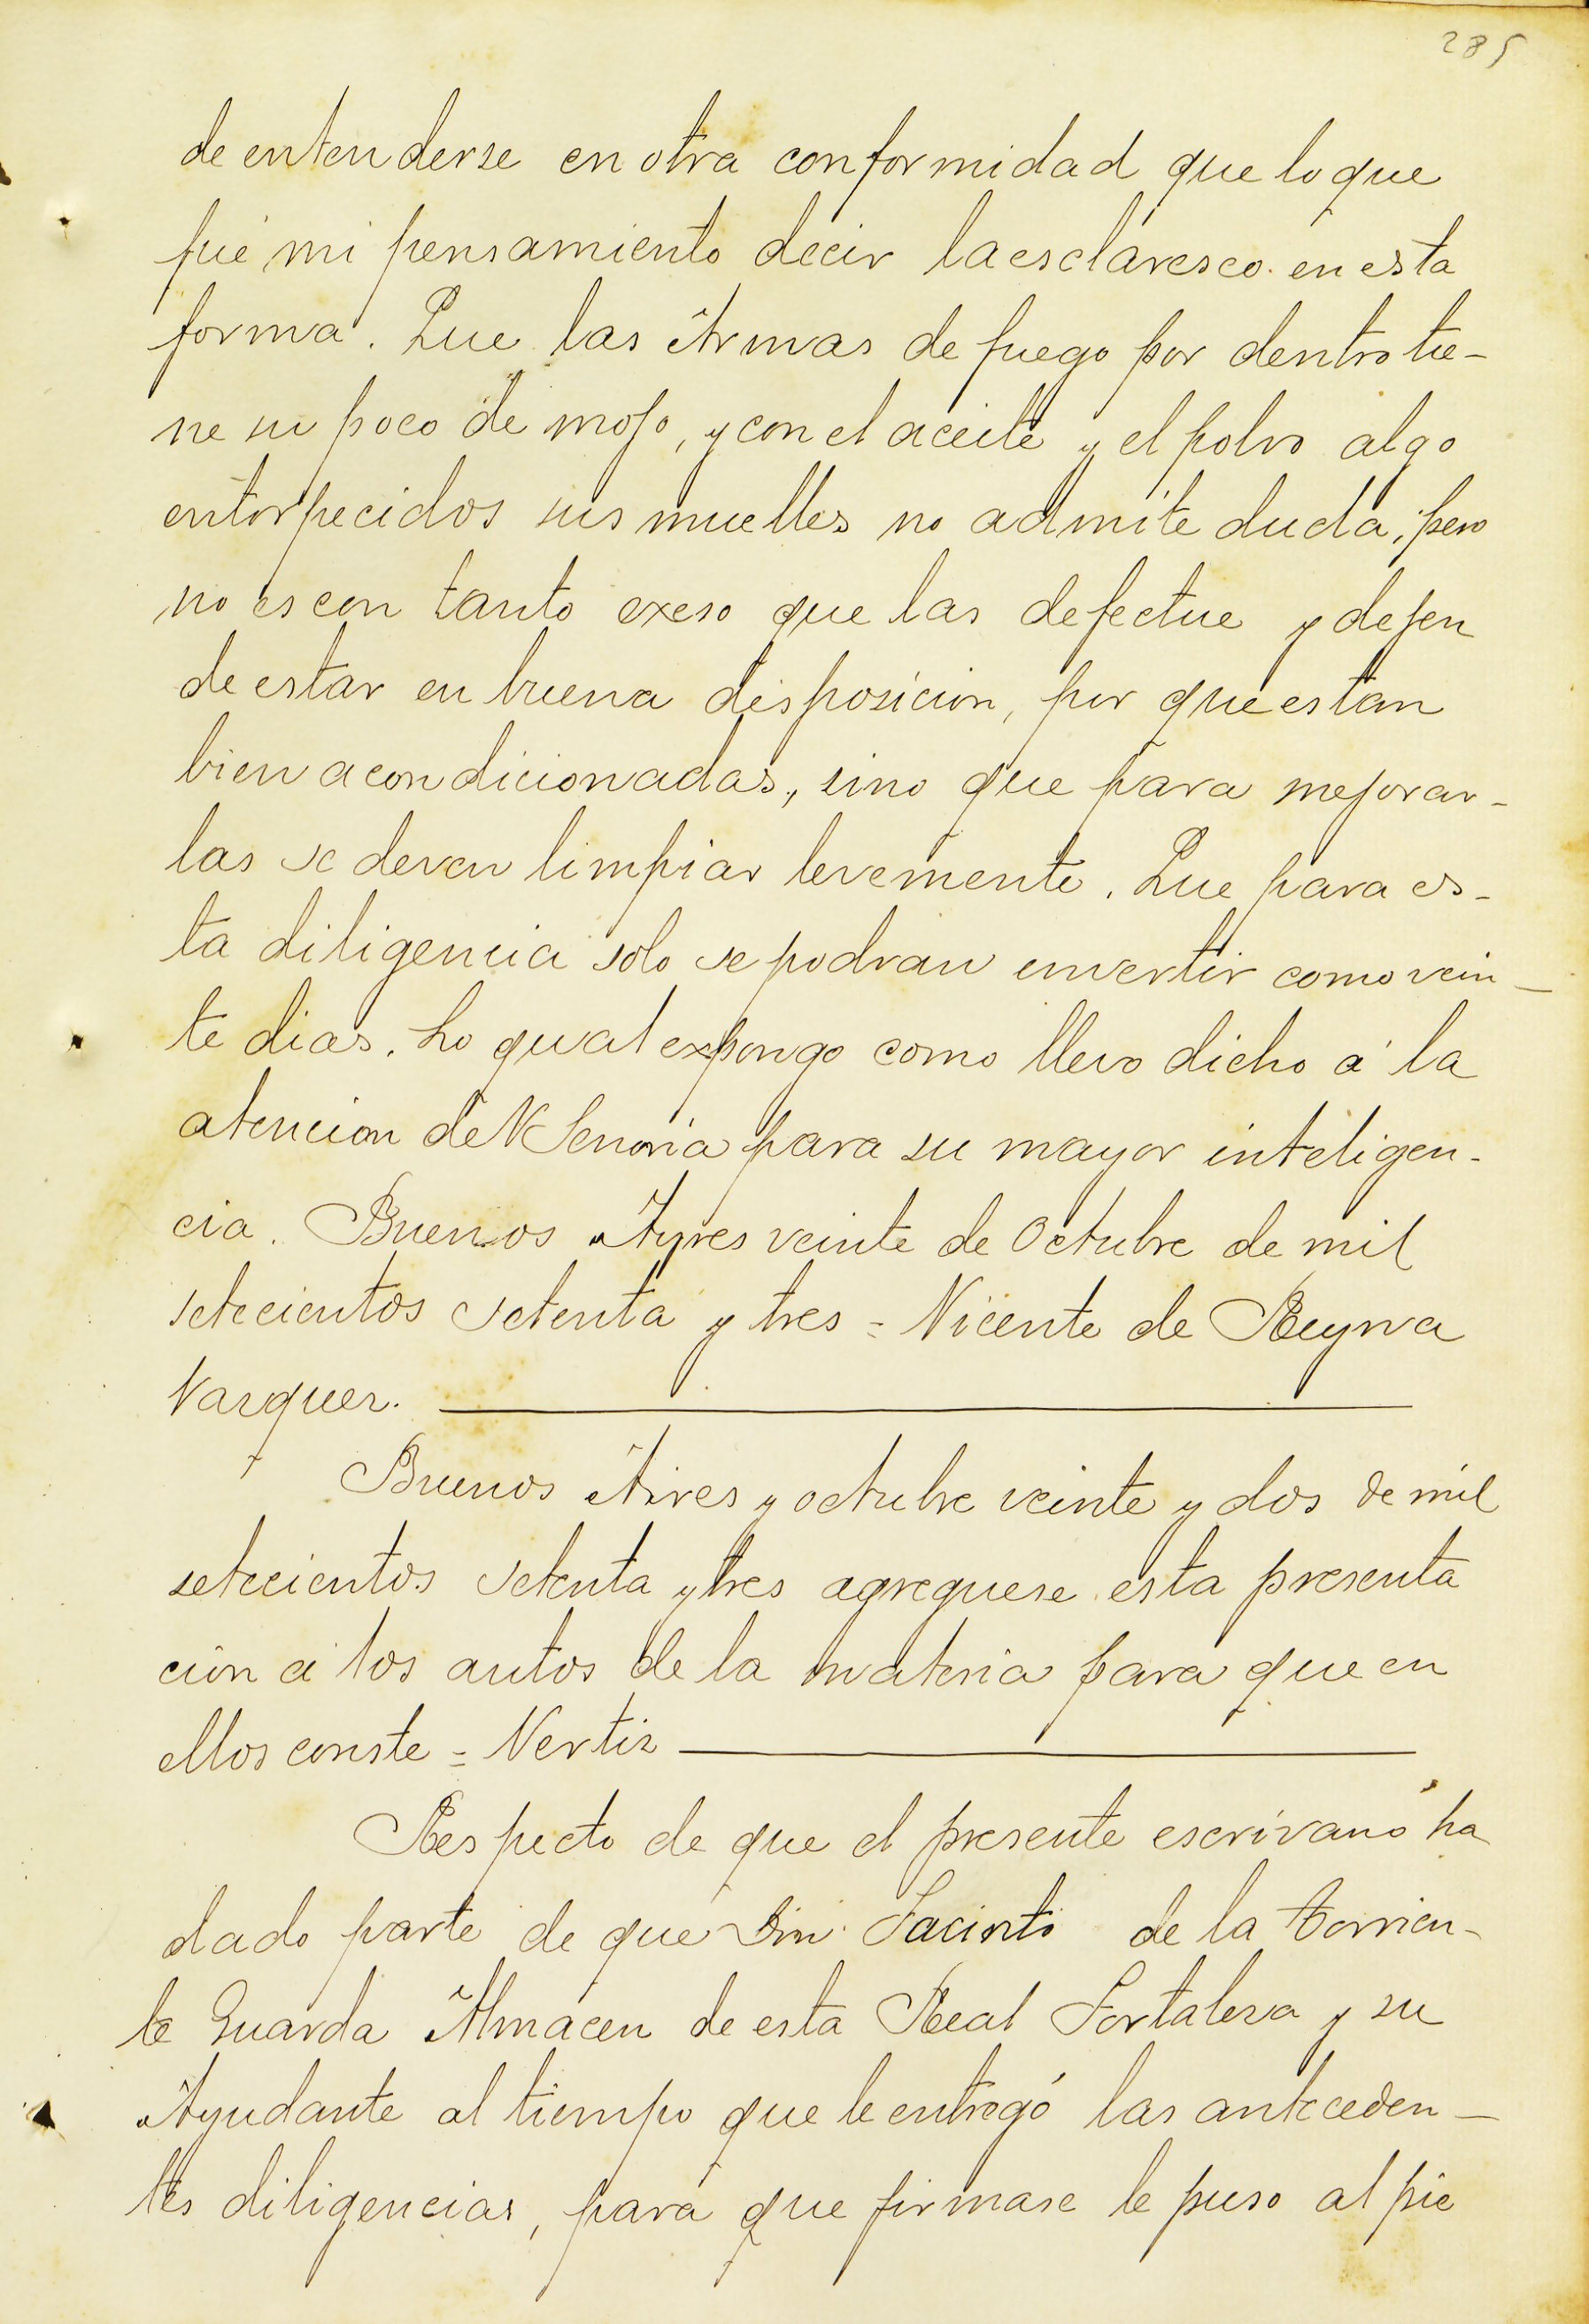 285
de entenderse en otra conformidad que lo que
fué mi pensamiento decir la esclaresco en esta
forma. Que las Armas de fuego por dentro tie-
ne su poco de moso, y con el aceite y el polvo algo
entorpecidos sus muelles no admite duda, pero
no es con tanto exeso que las defectue y dejen
de estar en buena disposicion, por que estan
bien acondicionadas, sino que para mejorar-
las se deven limpiar levemente. Que para es-
ta diligencia solo se podran invertir como vein-
te dias. Lo qual expongo como llevo dicho á la
atencion de V Senoria para su mayor inteligen-
cia. Buenos Ayres veinte de Octubre de mil
setecientos setenta y tres = Vicente de Reyna
Vazquez.
Buenos Aires y octubre veinte y dos de mil
setecientos setenta y tres agreguese esta presenta
cion a los autos de la materia para que en
ellos conste = Vertiz
Respecto de que el presente escrivano ha
dado parte de que Don Jacinto de la Torrien-
te Guarda Almacen de esta Real Fortaleza y su
Ayudante al tiempo que le entregó las anteceden-
tes diligencias, para que firmase le puso al pie